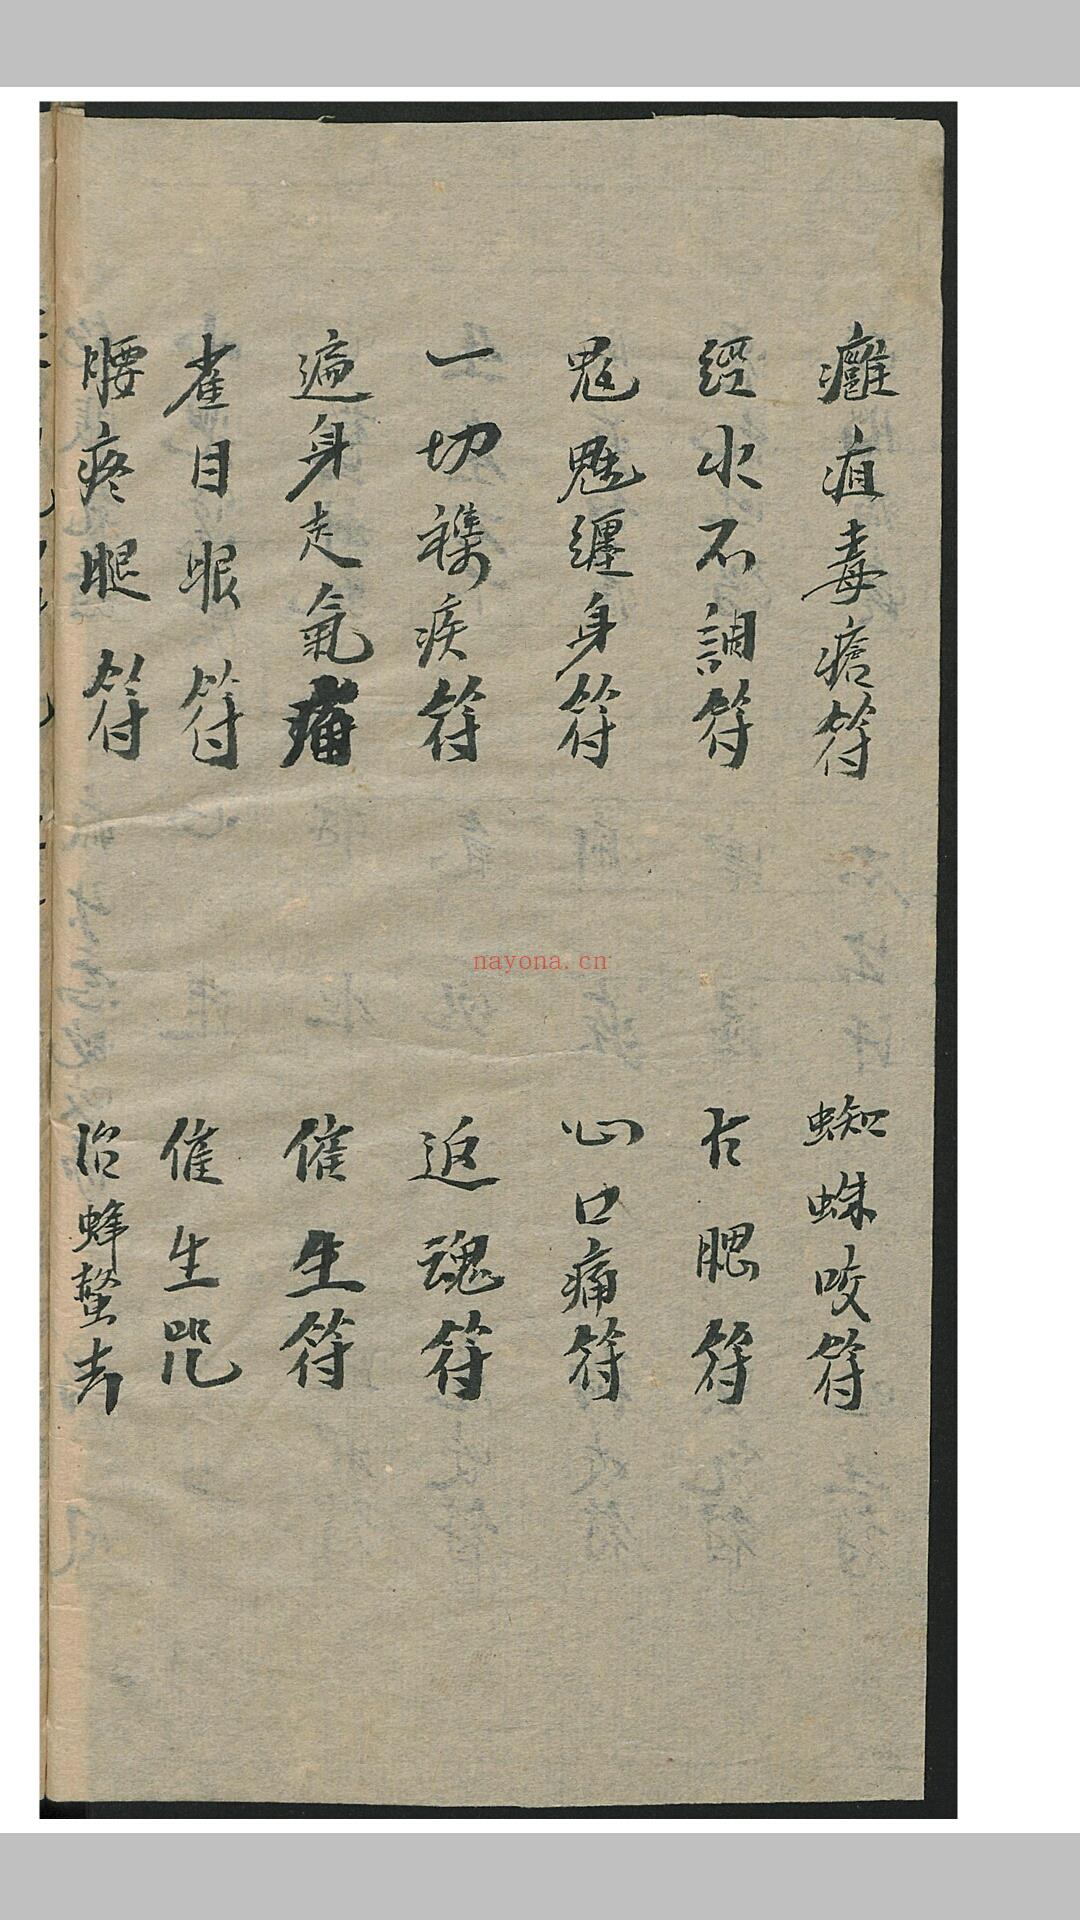 癰疽毒瘡符
蜘蛛咬符
經水不調符
乍腮符
魁魁纏身符
心口痛符
一切襍疾符
返魂符
遍身走氣痛
催生符
雀目眼符
催生咒
腰疼腿符
治蜂螫去
nayona.cn